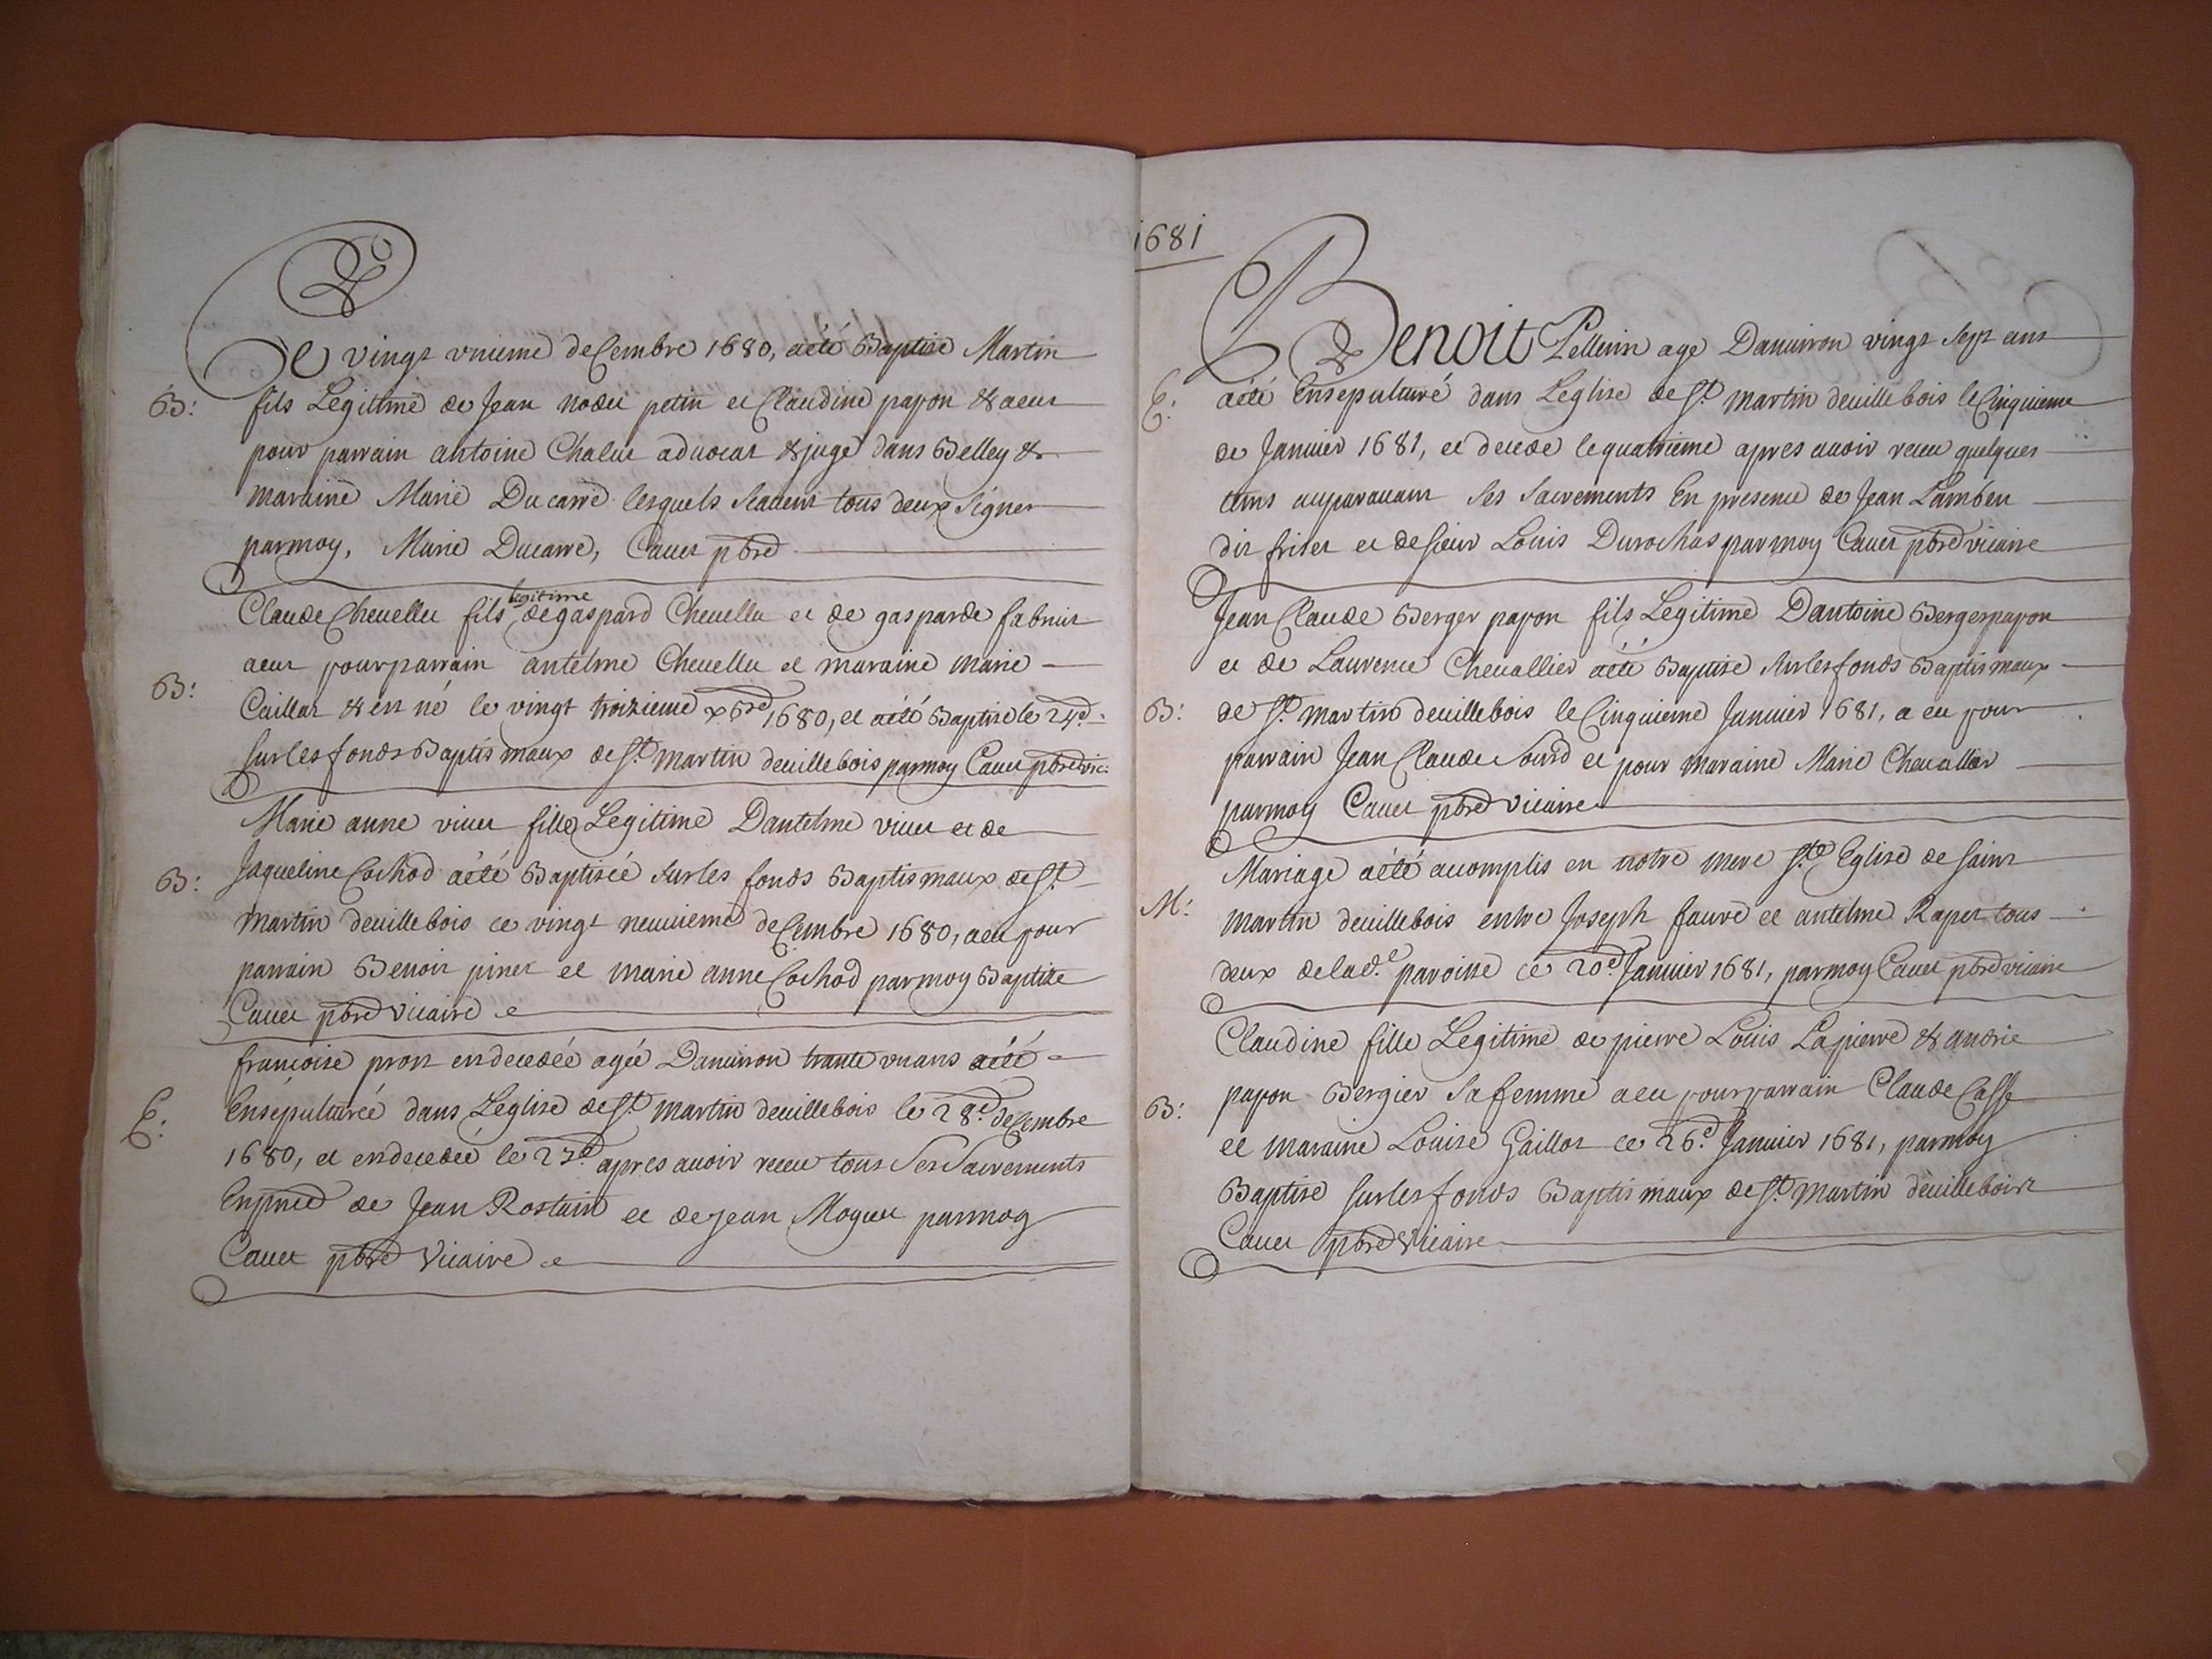 Le vingt vnieme deCembre 1680, aété Baptisé Martin
B: fils Legitime de Jean nodet petin et Claudine papon & aeut
pour parrain antoine Chalut aduocat & juge dans Belley &
maraine Marie Ducarre lesquels scauent tous deux signer
parmoy, Marie Ducarre, Cauet pbre
Claude Cheuellu fils legitime de gaspard Cheuellu et de gasparde fabrut
aeut pour parrain antelme Cheuellu et maraine marie
B: Caillat & est né le vingt troizieme xbre 1680, et aété Baptisé le 24d.
sur les fonds Baptismaux de St. martin deuillebois parmoy Cauet pbre vic:
Marie anne viuet fille Legitime Dantelme viuet et de
B: Jaqueline Cochod aété Baptisée sur les fonds Baptismaux de St.
martin deuillebois ce vingt neuuieme deCembre 1680, aeu pour
parrain Benoit pinet et marie anne Cochod parmoy Baptiste
Cauet pbre vicaire
francoise prost est decedée agée Danuiron trante vn ans aété
E: Ensepulturée dans Leglise de St. martin deuillebois le 28.e deCembre
1680, et est decedée le 27d. apres auoir receu tous ses sacrements
En pnce de Jean Rostaint et de jean Moguet parmoy
Cauet pbre vicaire
1681
Benoit Pellerin age Danuiron vingt sept ans
E: aété Ensepulturé dans Leglise de St. martin deuillebois le Cinquieme
de Januier 1681, et decede le quatrieme apres auoir receu quelques
tems auparauant ses sacrements En presence de Jean Lambert
dit friset et de sieur Louis Durochas parmoy Cauet pbre vicaire
Jean Claude Berger papon fils Legitime Dantoine Berger papon
et de Laurence Cheuallier aété Baptisé sur les fonds Baptismaux
B: de St. martin deuillebois le Cinquieme Januier 1681, a eu pour
parrain Jean Claude Sourd et pour maraine Marie Cheuallier
parmoy Cauet pbre vicaire
Mariage aété acomplis en notre mere Ste. Eglise de saint
M: martin deuillebois entre Joseph faure et antelme Rapet tous
deux de lad.e paroisse ce 20d. Januier 1681, parmoy Cauet pbre vicaire
Claudine fille Legitime de pierre Louis Lapierre & andrie
B: papon Bergier sa femme aeu pour parrain Claude Casse
et maraine Louise Gaillot ce 26.e Januier 1681, parmoy
Baptisé sur les fonds Baptismaux de St. martin deuillebois
Cauet pbre vicaire